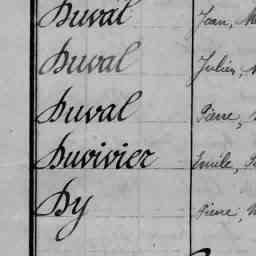 Duval Jean,
Duval Julien,
Duval Pierre,
Duvivier Emile,
Dy Pierre,